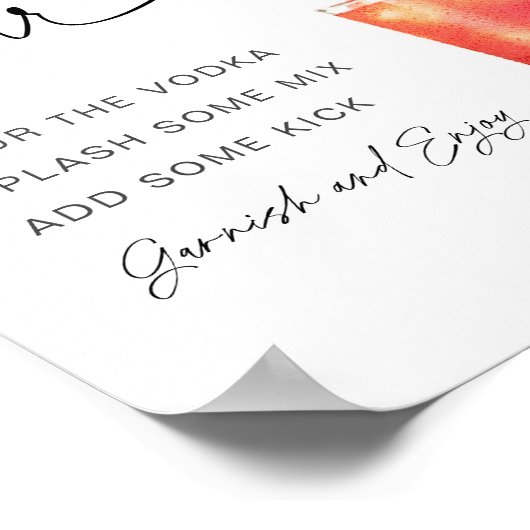 UR THE VODKA
PLASH SOME MIX
ADD SOME KICK
Garnish and Enjoy